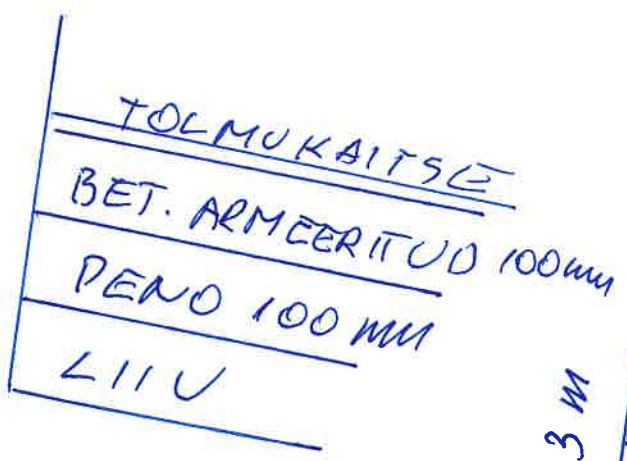 TOLMUKAITSE
BET. ARMEERITUD 100mm
PENO 100 mm
LIIV
3 m